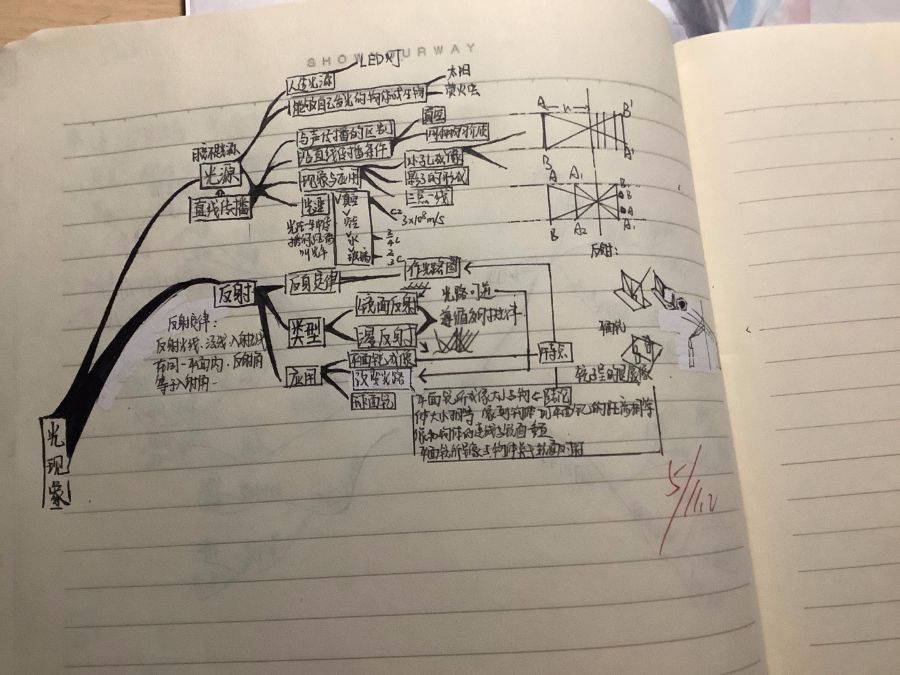 SHOW YOURWAY
LED灯
人造光源
太阳
能够自己发光的物体或生物
萤火虫
月亮不是光源
光源
与声传播的区别
真空
沿直线传播条件
同种均匀介质
直线传播
现象与应用
小孔成像
影子的形成
三点一线
光速
真空
水
玻璃
3×10⁸m/s
反射
反射定律
作光路图
反射:
反射定律:
反射光线、法线、入射光线
在同一平面内,反射角
等于入射角.
类型
镜面反射
漫反射
光路可逆
遵循反射定律
应用
平面镜成像
改变光路
球面镜
特点
结论
平面镜所成像大小与物
体大小相等 像到物体到平面镜的距离相等
像和物体的连线与镜面垂直
平面镜所成像与物体关于镜面对称
光现象
A
h
B'
B
A'
A
A₁
B
A₂
A₁
5/11.2